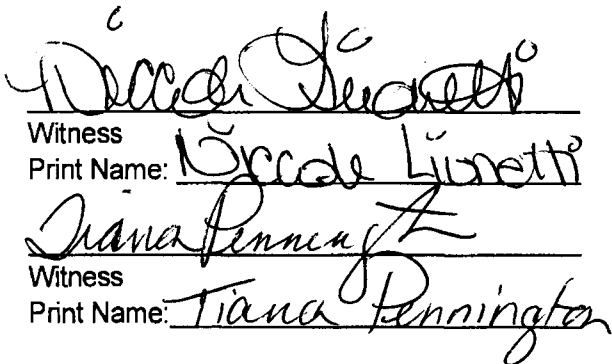 Niccole Lionetti
Witness
Print Name: Niccole Lionetti
Tiana Pennington
Witness
Print Name: Tiana Pennington